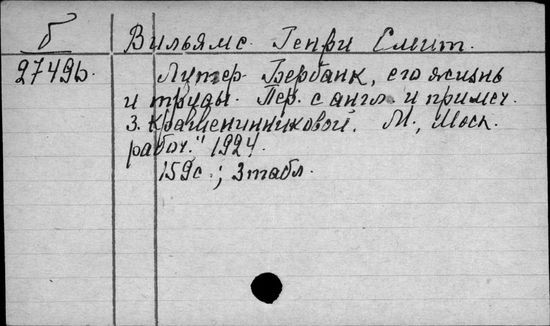 б Вильямс. Генри Смит.
2749Б. Лутер Бербанк, его жизнь
и труды. Пер. с англ. и примеч.
З. Крашенинниковой. М., „Моск.
рабоч." 1924.
159с.; 3 табл.